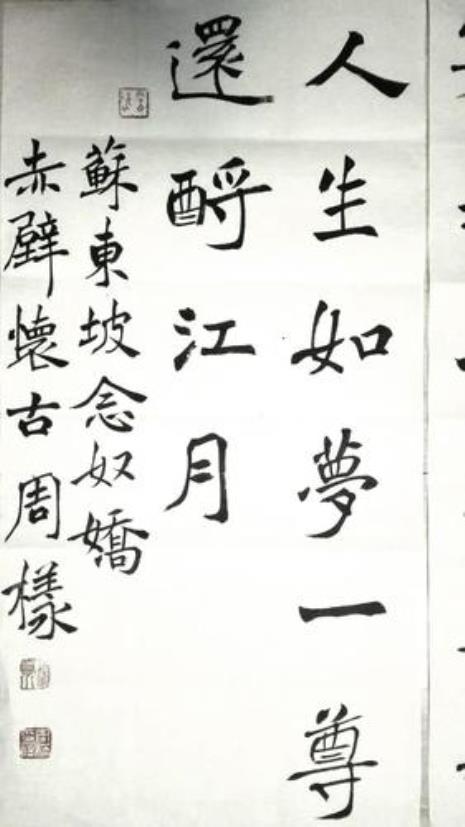 人生如夢一尊
還酹江月
蘇東坡念奴嬌
赤壁懷古周樣